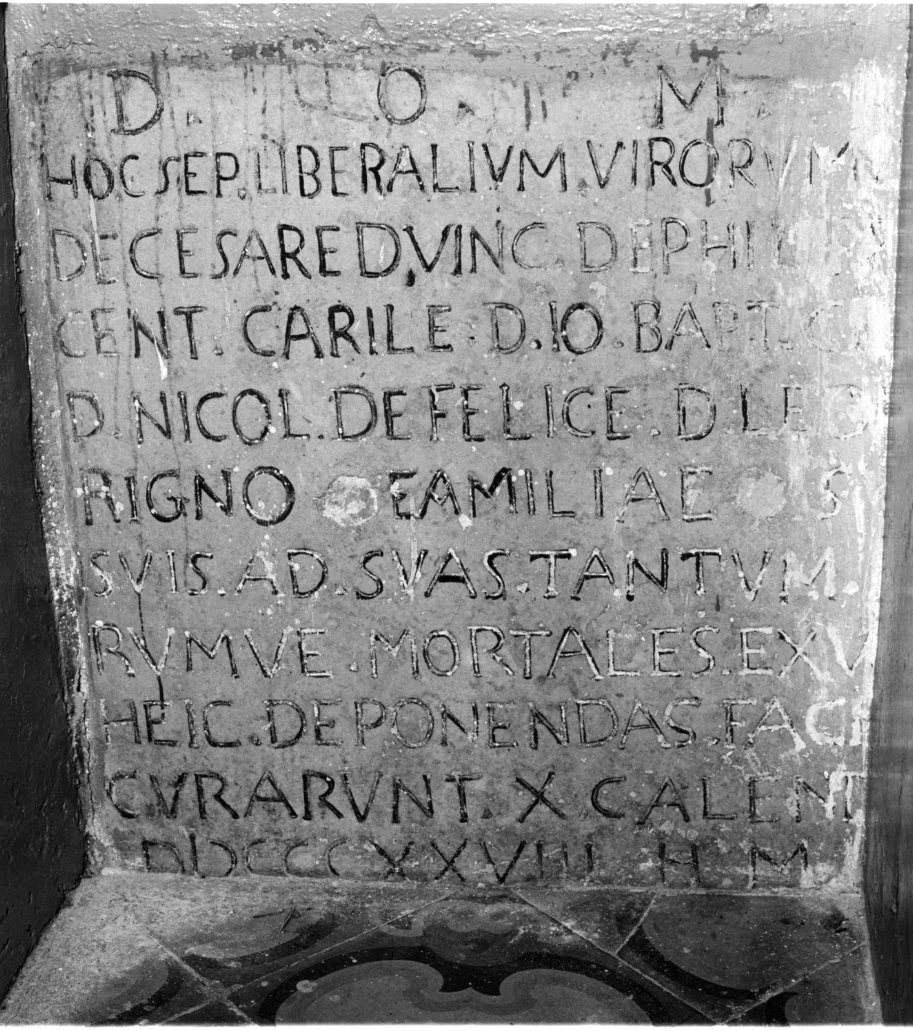 D. O. M.
HOC SEP. LIBERALIVM. VIRORVM
DE CESARE D. VINC. DE PHIL
CENT. CARILE. D. IO. BAPT.
D. NICOL. DE FELICE. D. LEO
RIGNO FAMILIAE S
SVIS. AD. SVAS. TANTVM.
RVMVE. MORTALES. EXVV
HEIC. DEPONENDAS. FAC
CVRARVNT. X CALEN
DCCCXXVIII H M